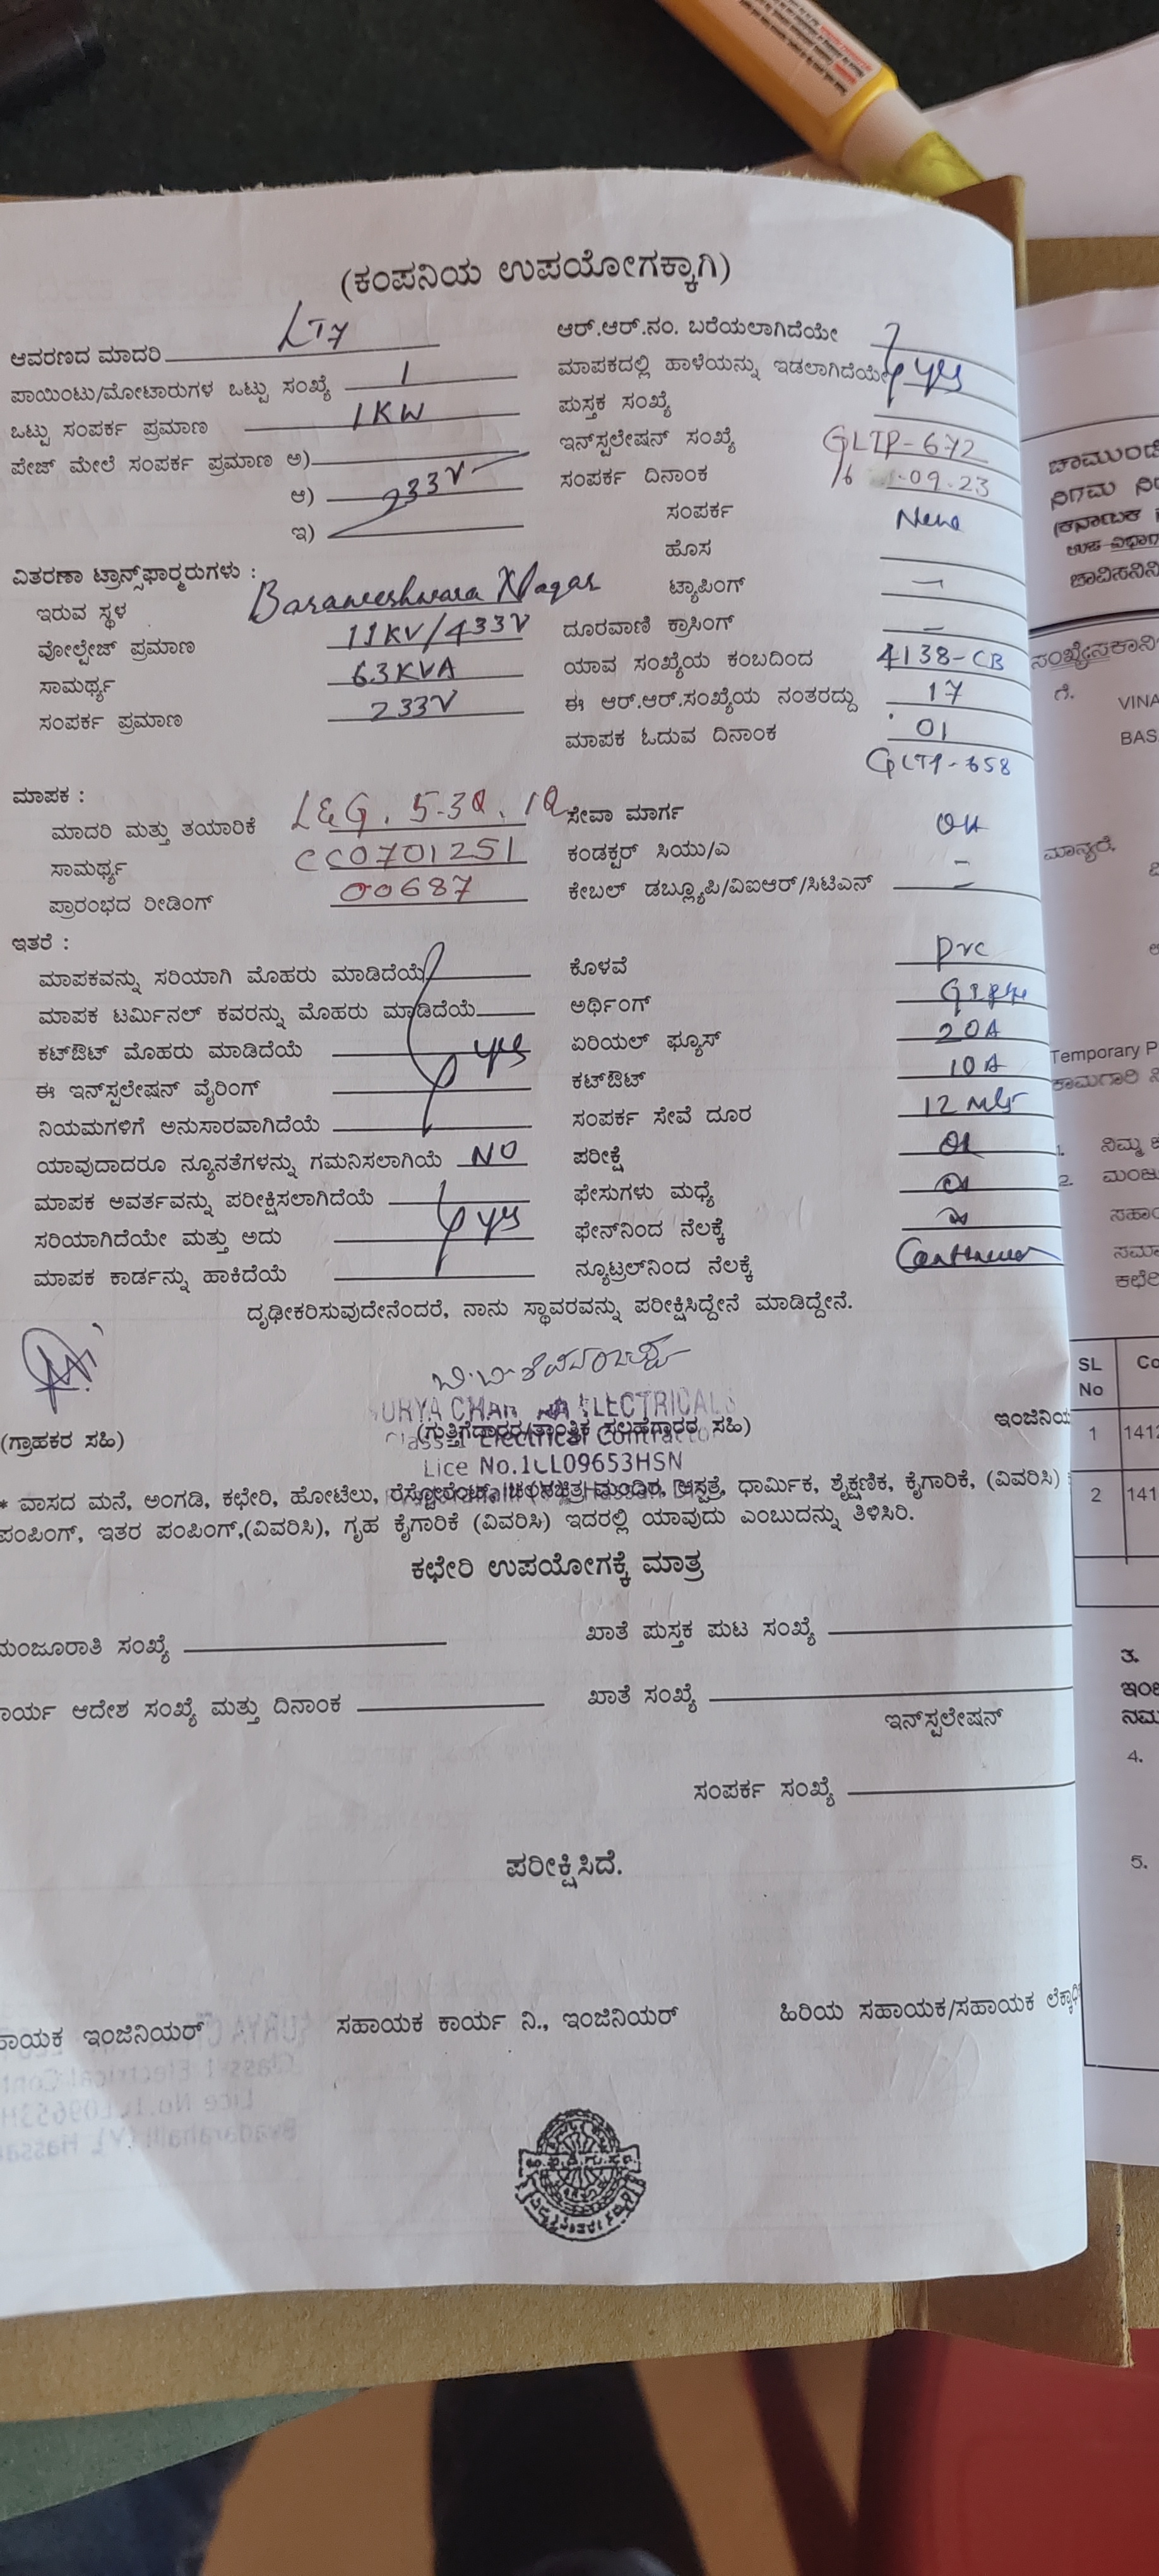 (ಕಂಪನಿಯ ಉಪಯೋಗಕ್ಕಾಗಿ)
ಆವರಣದ ಮಾದರಿ LT7
ಪಾಯಿಂಟು/ಮೋಟಾರುಗಳ ಒಟ್ಟು ಸಂಖ್ಯೆ 1
ಒಟ್ಟು ಸಂಪರ್ಕ ಪ್ರಮಾಣ 1KW
ಪೇಜ್ ಮೇಲೆ ಸಂಪರ್ಕ ಪ್ರಮಾಣ ಅ)
ಆ) 233V
ಇ)
ವಿತರಣಾ ಟ್ರಾನ್ಸ್‌ಫಾರ್‍ಮರುಗಳು :
ಇರುವ ಸ್ಥಳ Basaveshwara Nagar
ವೋಲ್ಟೇಜ್ ಪ್ರಮಾಣ 11KV/433V
ಸಾಮರ್ಥ್ಯ 63KVA
ಸಂಪರ್ಕ ಪ್ರಮಾಣ 233V
ಆರ್.ಆರ್.ನಂ. ಬರೆಯಲಾಗಿದೆಯೇ
ಮಾಪಕದಲ್ಲಿ ಹಾಳೆಯನ್ನು ಇಡಲಾಗಿದೆಯೇ yes
ಪುಸ್ತಕ ಸಂಖ್ಯೆ
ಇನ್‌ಸ್ಟಲೇಷನ್ ಸಂಖ್ಯೆ GLTP-672
ಸಂಪರ್ಕ ದಿನಾಂಕ 09.23
ಸಂಪರ್ಕ New
ಹೊಸ
ಟ್ಯಾಪಿಂಗ್ —
ದೂರವಾಣಿ ಕ್ರಾಸಿಂಗ್ —
ಯಾವ ಸಂಖ್ಯೆಯ ಕಂಬದಿಂದ 4138-CB
ಈ ಆರ್.ಆರ್.ಸಂಖ್ಯೆಯ ನಂತರದ್ದು 17
ಮಾಪಕ ಓದುವ ದಿನಾಂಕ 01
GLTP-658
ಮಾಪಕ :
ಮಾದರಿ ಮತ್ತು ತಯಾರಿಕೆ L&G. 5-30. 1Q
ಸಾಮರ್ಥ್ಯ CC0701251
ಪ್ರಾರಂಭದ ರೀಡಿಂಗ್ 00687
ಸೇವಾ ಮಾರ್ಗ OH
ಕಂಡಕ್ಟರ್ ಸಿಯು/ಎ –
ಕೇಬಲ್ ಡಬ್ಲ್ಯೂಪಿ/ವಿಐಆರ್/ಸಿಟಿಎಸ್ –
ಇತರೆ :
ಮಾಪಕವನ್ನು ಸರಿಯಾಗಿ ಮೊಹರು ಮಾಡಿದೆಯೆ
ಮಾಪಕ ಟರ್ಮಿನಲ್ ಕವರನ್ನು ಮೊಹರು ಮಾಡಿದೆಯೆ
ಕಟ್‌ಔಟ್ ಮೊಹರು ಮಾಡಿದೆಯೆ yes
ಈ ಇನ್‌ಸ್ಟಲೇಷನ್ ವೈರಿಂಗ್
ನಿಯಮಗಳಿಗೆ ಅನುಸಾರವಾಗಿದೆಯೆ
ಯಾವುದಾದರೂ ನ್ಯೂನತೆಗಳನ್ನು ಗಮನಿಸಲಾಗಿಯೆ NO
ಮಾಪಕ ಅವರ್ತವನ್ನು ಪರೀಕ್ಷಿಸಲಾಗಿದೆಯೆ
ಸರಿಯಾಗಿದೆಯೇ ಮತ್ತು ಅದು yes
ಮಾಪಕ ಕಾರ್ಡನ್ನು ಹಾಕಿದೆಯೆ
ಕೊಳವೆ pvc
ಅರ್ಥಿಂಗ್
ಏರಿಯಲ್ ಫ್ಯೂಸ್ 20A
ಕಟ್‌ಔಟ್ 10A
ಸಂಪರ್ಕ ಸೇವೆ ದೂರ 12 Mtr
ಪರೀಕ್ಷೆ
ಫೇಸುಗಳು ಮಧ್ಯೆ
ಫೇಸ್‌ನಿಂದ ನೆಲಕ್ಕೆ
ನ್ಯೂಟ್ರಲ್‌ನಿಂದ ನೆಲಕ್ಕೆ
ದೃಢೀಕರಿಸುವುದೇನೆಂದರೆ, ನಾನು ಸ್ಥಾವರವನ್ನು ಪರೀಕ್ಷಿಸಿದ್ದೇನೆ ಮಾಡಿದ್ದೇನೆ.
ELECTRICALS
(ಗ್ರಾಹಕರ ಸಹಿ) (ಗುತ್ತಿಗೆದಾರರ/ತಾಂತ್ರಿಕ ಸಲಹೆಗಾರರ ಸಹಿ) ಇಂಜಿನಿಯ
Electrical Contractor
Lice No.1CL09653HSN
* ವಾಸದ ಮನೆ, ಅಂಗಡಿ, ಕಛೇರಿ, ಹೋಟೆಲು, ರೆಸ್ಟೋರೆಂಟ್, ಚಲನಚಿತ್ರ ಮಂದಿರ, ಆಸ್ಪತ್ರೆ, ಧಾರ್ಮಿಕ, ಶೈಕ್ಷಣಿಕ, ಕೈಗಾರಿಕೆ, (ವಿವರಿಸಿ)
ಪಂಪಿಂಗ್, ಇತರ ಪಂಪಿಂಗ್,(ವಿವರಿಸಿ), ಗೃಹ ಕೈಗಾರಿಕೆ (ವಿವರಿಸಿ) ಇದರಲ್ಲಿ ಯಾವುದು ಎಂಬುದನ್ನು ತಿಳಿಸಿರಿ.
ಕಛೇರಿ ಉಪಯೋಗಕ್ಕೆ ಮಾತ್ರ
ಮಂಜೂರಾತಿ ಸಂಖ್ಯೆ
ಖಾತೆ ಪುಸ್ತಕ ಪುಟ ಸಂಖ್ಯೆ
ಾರ್ಯ ಆದೇಶ ಸಂಖ್ಯೆ ಮತ್ತು ದಿನಾಂಕ
ಖಾತೆ ಸಂಖ್ಯೆ
ಇನ್‌ಸ್ಟಲೇಷನ್
ಸಂಪರ್ಕ ಸಂಖ್ಯೆ
ಪರೀಕ್ಷಿಸಿದೆ.
ಹಾಯಕ ಇಂಜಿನಿಯರ್ ಸಹಾಯಕ ಕಾರ್ಯ ನಿ., ಇಂಜಿನಿಯರ್ ಹಿರಿಯ ಸಹಾಯಕ/ಸಹಾಯಕ
ಚಾಮುಂಡೇ
ನಿಗಮ ನಿ
(ಕರ್ನಾಟಕ
ಉಪ ವಿಭಾಗ
ಚಾವಿಸನಿನಿ
ಸಂಖ್ಯೆ:ಸಕಾನಿ
ಗೆ.
VINA
BAS
ಮಾನ್ಯರೆ,
Temporary P
ಕಾಮಗಾರಿ
1. ನಿಮ್ಮ
2. ಮಂಜೂ
ಸಹಾಯ
ಸಮಾ
ಕಛೇರಿ
SL No Co
1 1412
2 141
ಇಂಜ
ನಮ
4.
5.